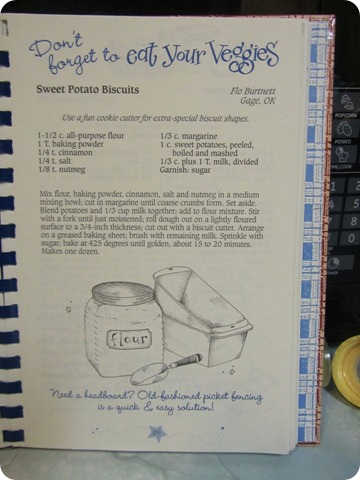 Don't
forget to eat your Veggies
Sweet Potato Biscuits
Flo Burtnett
Gage, OK
Use a fun cookie cutter for extra-special biscuit shapes.
1-1/2 c. all-purpose flour
1 T. baking powder
1/4 t. cinnamon
1/4 t. salt
1/8 t. nutmeg
1/3 c. margarine
1 c. sweet potatoes, peeled,
boiled and mashed
1/3 c. plus 1 T. milk, divided
Garnish: sugar
Mix flour, baking powder, cinnamon, salt and nutmeg in a medium
mixing bowl; cut in margarine until coarse crumbs form. Set aside.
Blend potatoes and 1/3 cup milk together; add to flour mixture. Stir
with a fork until just moistened; roll dough out on a lightly floured
surface to a 3/4-inch thickness; cut out with a biscuit cutter. Arrange
on a greased baking sheet; brush with remaining milk. Sprinkle with
sugar; bake at 425 degrees until golden, about 15 to 20 minutes.
Makes one dozen.
flour
Need a headboard? Old-fashioned picket fencing
is a quick & easy solution!
POPCORN
POTATO
TIME COOK